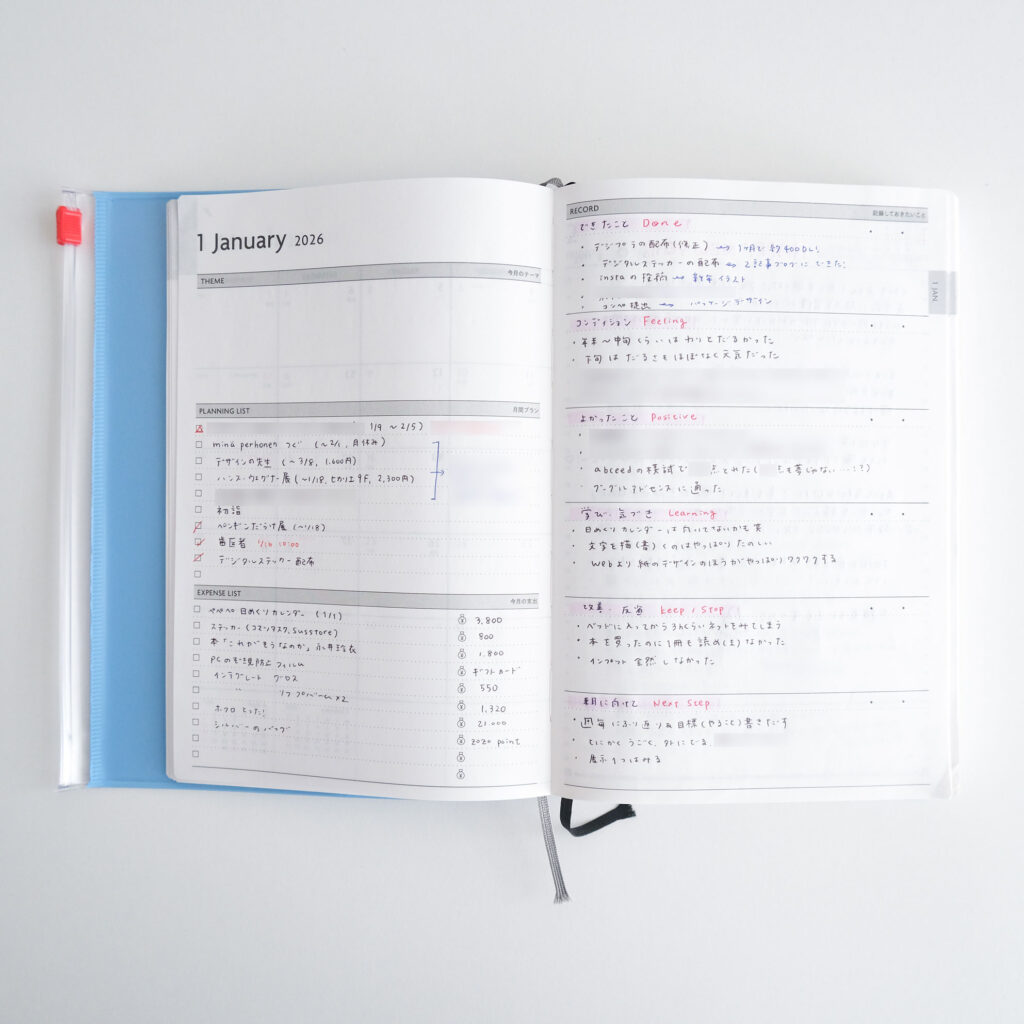 1 January 2026
THEME 今月のテーマ
PLANNING LIST 月間プラン
1/9 〜2/5)
minä perhonen つぐ (〜2/1, 月休み)
デザインの先生 (〜3/8, 1,600円)
ハンス・ウェグナー展 (〜1/18, ヒカリエ9F, 2,300円)
初詣
ペンギンだらけ展 (〜1/18)
歯医者 1/16 10:00
デジタルステッカー配布
EXPENSE LIST 今月の支出
ペペペ 日めくりカレンダー (1/1) 3,800
ステッカー (コマンタスク, susstore) 800
本「これがそうなのか」永井玲衣 1,800
PCの 防止フィルム ギフトカード
インテグレート グロス 550
〃 リップバーム×2 1,320
ホフロ とった! 21,000
シルバーのバッグ ZOZO point
RECORD 記録しておきたいこと
できたこと Done
・デジプラの配布(修正) → 1ヶ月で約400DL!
・デジタルステッカーの配布 ← 2記事ブログにできた!
・instaの投稿 → 新年イラスト
・コンペ提出 → パッケージデザイン
コンディション Feeling
・年末〜中旬くらいはわりとだるかった
・下旬はだるさもほぼなく元気だった
よかったこと Positive
・abceedの模試で 点とれた( 点も夢じゃない……!?)
・グーグルアドセンスに通った
学び・気づき Learning
・日めくりカレンダーは向いてないかも笑
・文字を描(書)くのはやっぱりたのしい
・Webより紙のデザインのほうがやっぱりワクワクする
改善・反省 keep / Stop
・ベッドに入ってから3hくらいネットをみてしまう
・本を買ったのに1冊も読め(ま)なかった
・インプット全然しなかった
来月に向けて Next Step
・週毎にふり返り&目標(やること)書きだす
・とにかくうごく、外にでる。
・展示1つはみる
1 JAN